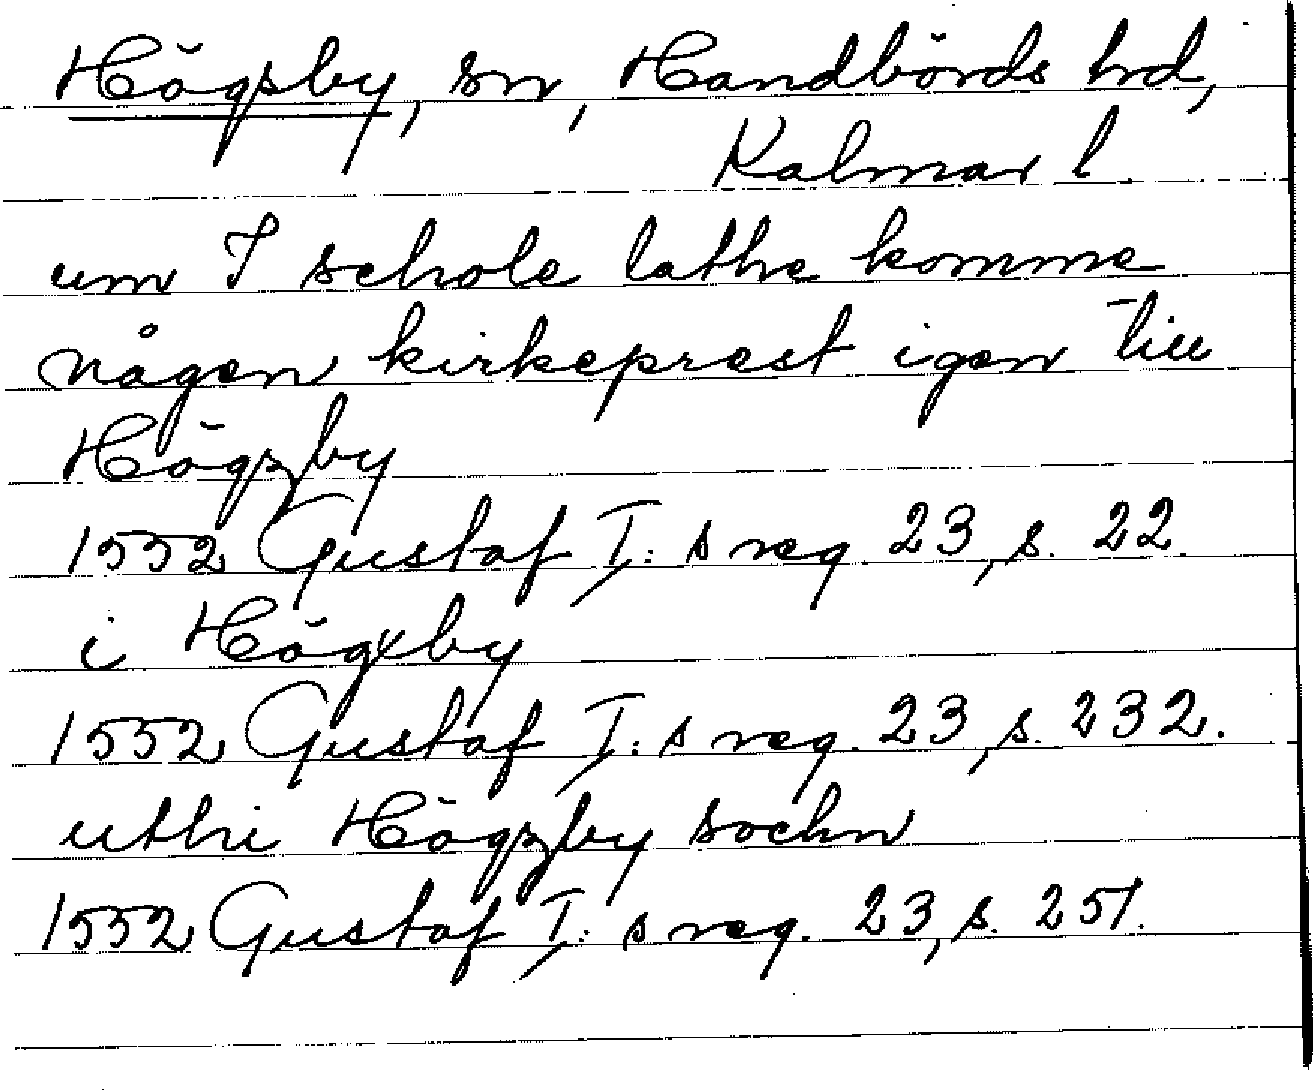 Högsby, sn, Handbörds hd,
Kalmar l.
um I schole lathe komme
någen kirkeprest igen till
Högzby
1552 Gustaf I:s reg. 23, s. 22.
i Högxby
1552 Gustaf I:s reg. 23, s. 232.
uthi Högzby sochn
1552 Gustaf I:s reg. 23, s. 251.